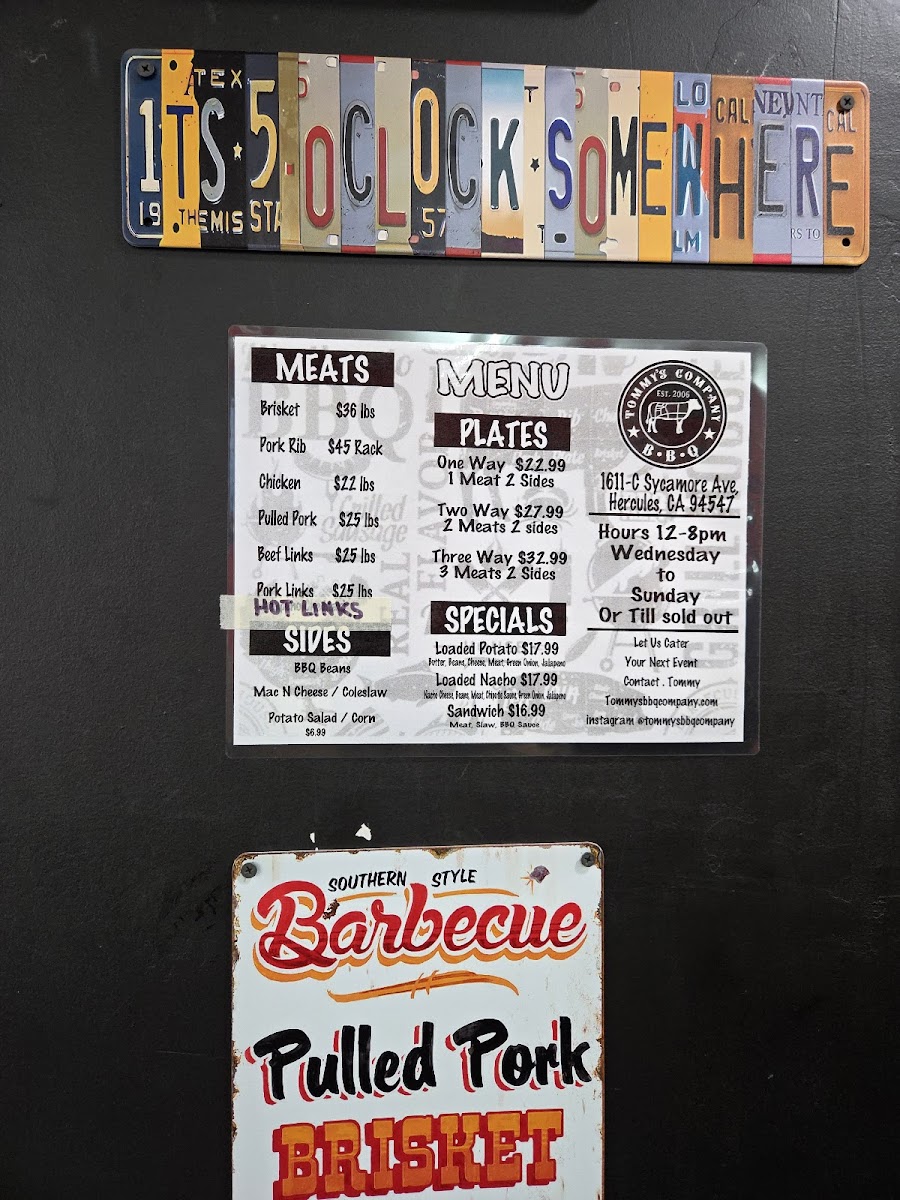 1TS 5 O'CLOCK SOMEWHERE
TEX
19 THEMIS STA
57
LO
LM
CAL
CAL
RS TO
MEATS
Brisket $36 lbs
Pork Rib $45 Rack
Chicken $22 lbs
Pulled Pork $25 lbs
Beef Links $25 lbs
Pork Links $25 lbs
HOT LINKS
SIDES
BBQ Beans
Mac N Cheese / Coleslaw
Potato Salad / Corn
$6.99
MENU
PLATES
One Way $22.99
1 Meat 2 Sides
Two Way $27.99
2 Meats 2 sides
Three Way $32.99
3 Meats 2 Sides
SPECIALS
Loaded Potato $17.99
Butter, Beans, Cheese, Meat, Green Onion, Jalapeno
Loaded Nacho $17.99
Nacho Cheese, Beans, Meat, Chipotle Sauce, Green Onion, Jalapeno
Sandwich $16.99
Meat, Slaw, BBQ Sauce
TOMMY'S COMPANY
EST. 2006
B·B·Q
1611-C Sycamore Ave,
Hercules, CA 94547
Hours 12-8pm
Wednesday
to
Sunday
Or Till sold out
Let Us Cater
Your Next Event
Contact . Tommy
Tommysbbqcompany.com
instagram @tommysbbqcompany
SOUTHERN STYLE
Barbecue
Pulled Pork
BRISKET